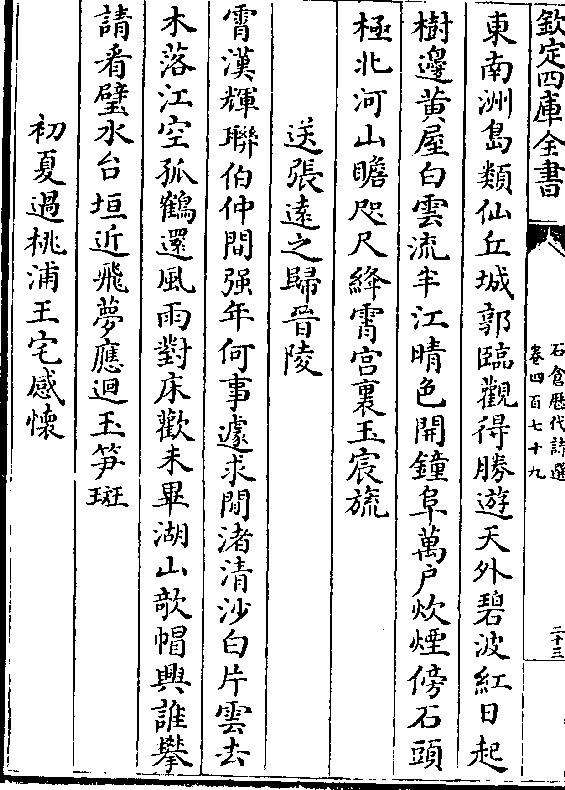 欽定四庫全書
石倉歷代詩選
卷四百七十九
二十三
東南洲島類仙丘城郭臨觀得勝遊天外碧波紅日起
樹邊黄屋白雲流半江晴色開鐘阜萬户炊煙傍石頭
極北河山瞻咫尺絳霄宫裏玉宸旒
送張遠之歸晉陵
霄漢輝聯伯仲間强年何事遽求閒渚清沙白片雲去
木落江空孤鶴還風雨對床歡未畢湖山欹帽興誰攀
請看璧水台垣近飛夢應迴玉笋班
初夏過桃浦王宅感懷